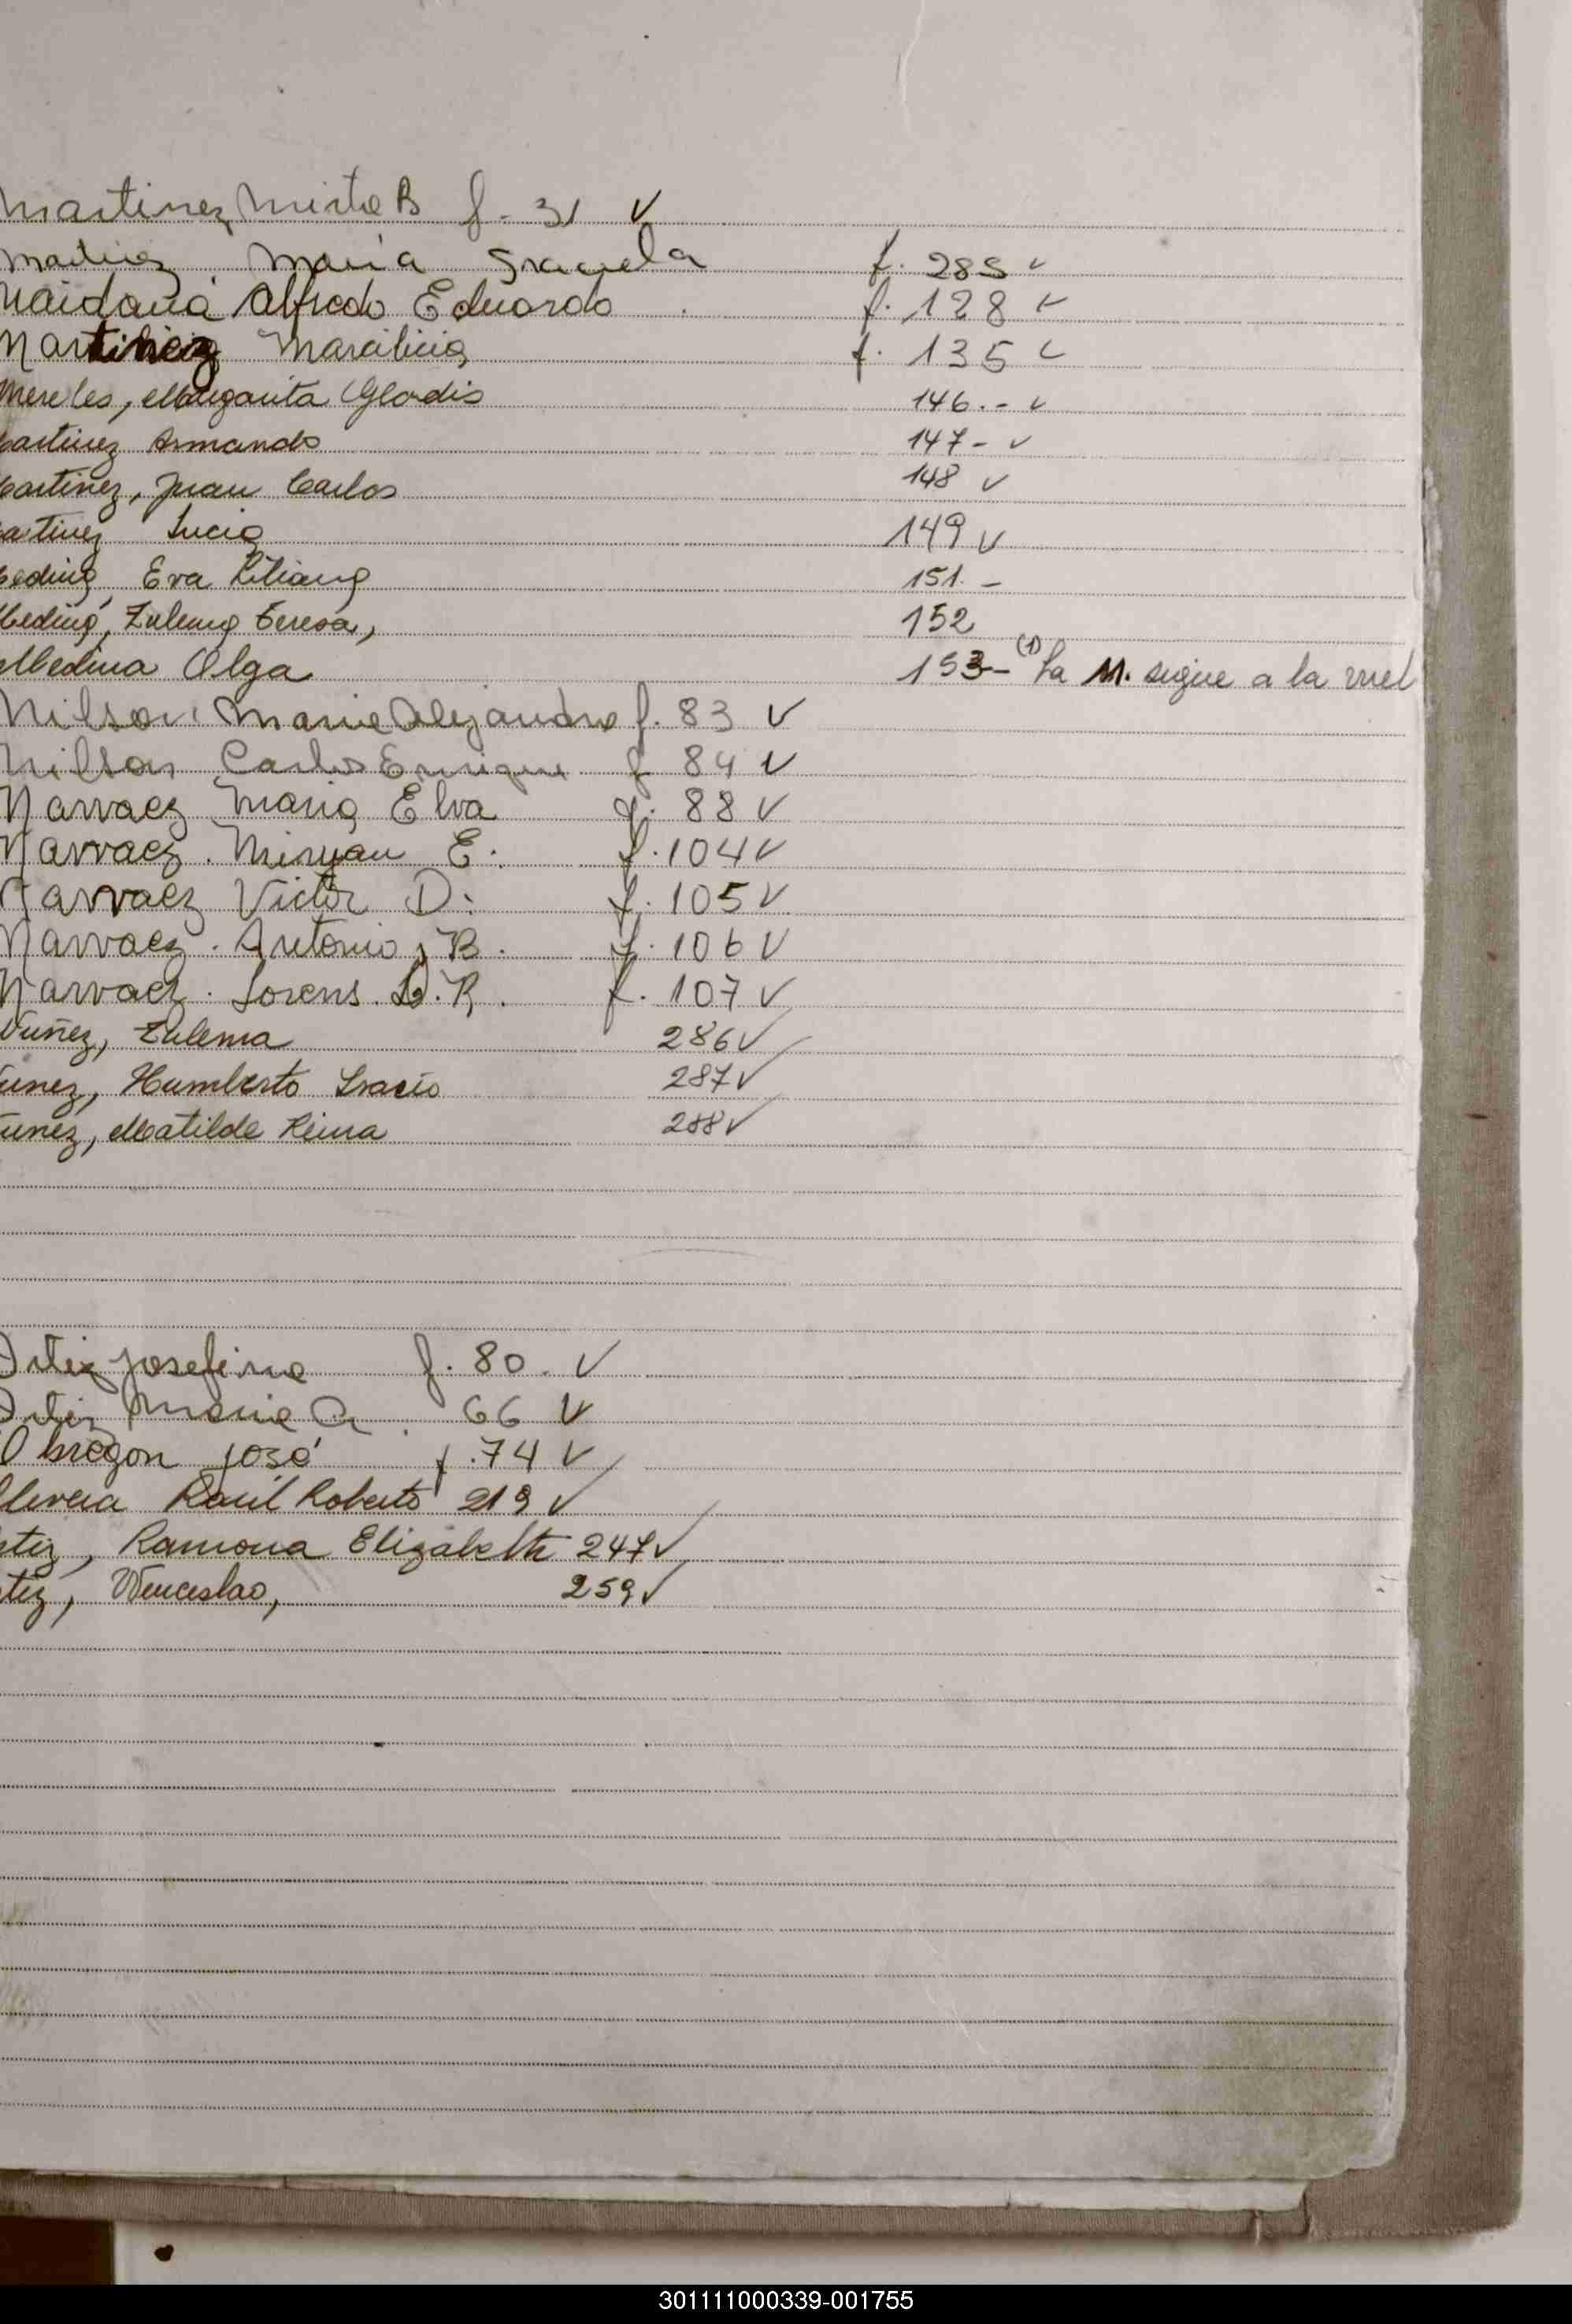 Martinez Mirta B f. 31 v
Martinez Maria Graciela f. 285 v
Maidana Alfredo Eduardo f. 128 v
Martinez f. 135 v
Mereles, Margarita Gladis 146.- v
artinez Armando 147- v
artinez, Juan Carlos 148 v
artinez Lucia 149 v
edina, Eva Liliana 151.-
Medina, Zulema Teresa, 152
Medina Olga 153- (1) La M. sigue a la vuel
Nilson Maria Alejandra f. 83 v
Nilson Carlos Enrique f 84 v
Narvaez Maria Elva f. 88 v
Narvaez. Miryan E. f. 104 v
Narvaez Victor D. f. 105 v
Narvaez. Antonio, B. f. 106 v
Narvaez. Lorens. D. R. f. 107 v
Nuñez, Zulema 286 v
uñez, Humberto Inacio 287 v
uñez, Matilde Reina 288 v
Ortiz Josefina f. 80. v
Ortiz Maria A. 66 v
Obregon José f. 74 v
Oliveira Raúl Roberto 219 v
rtiz, Ramona Elizabeth 247 v
rtiz, Wenceslao, 259 v
301111000339-001755